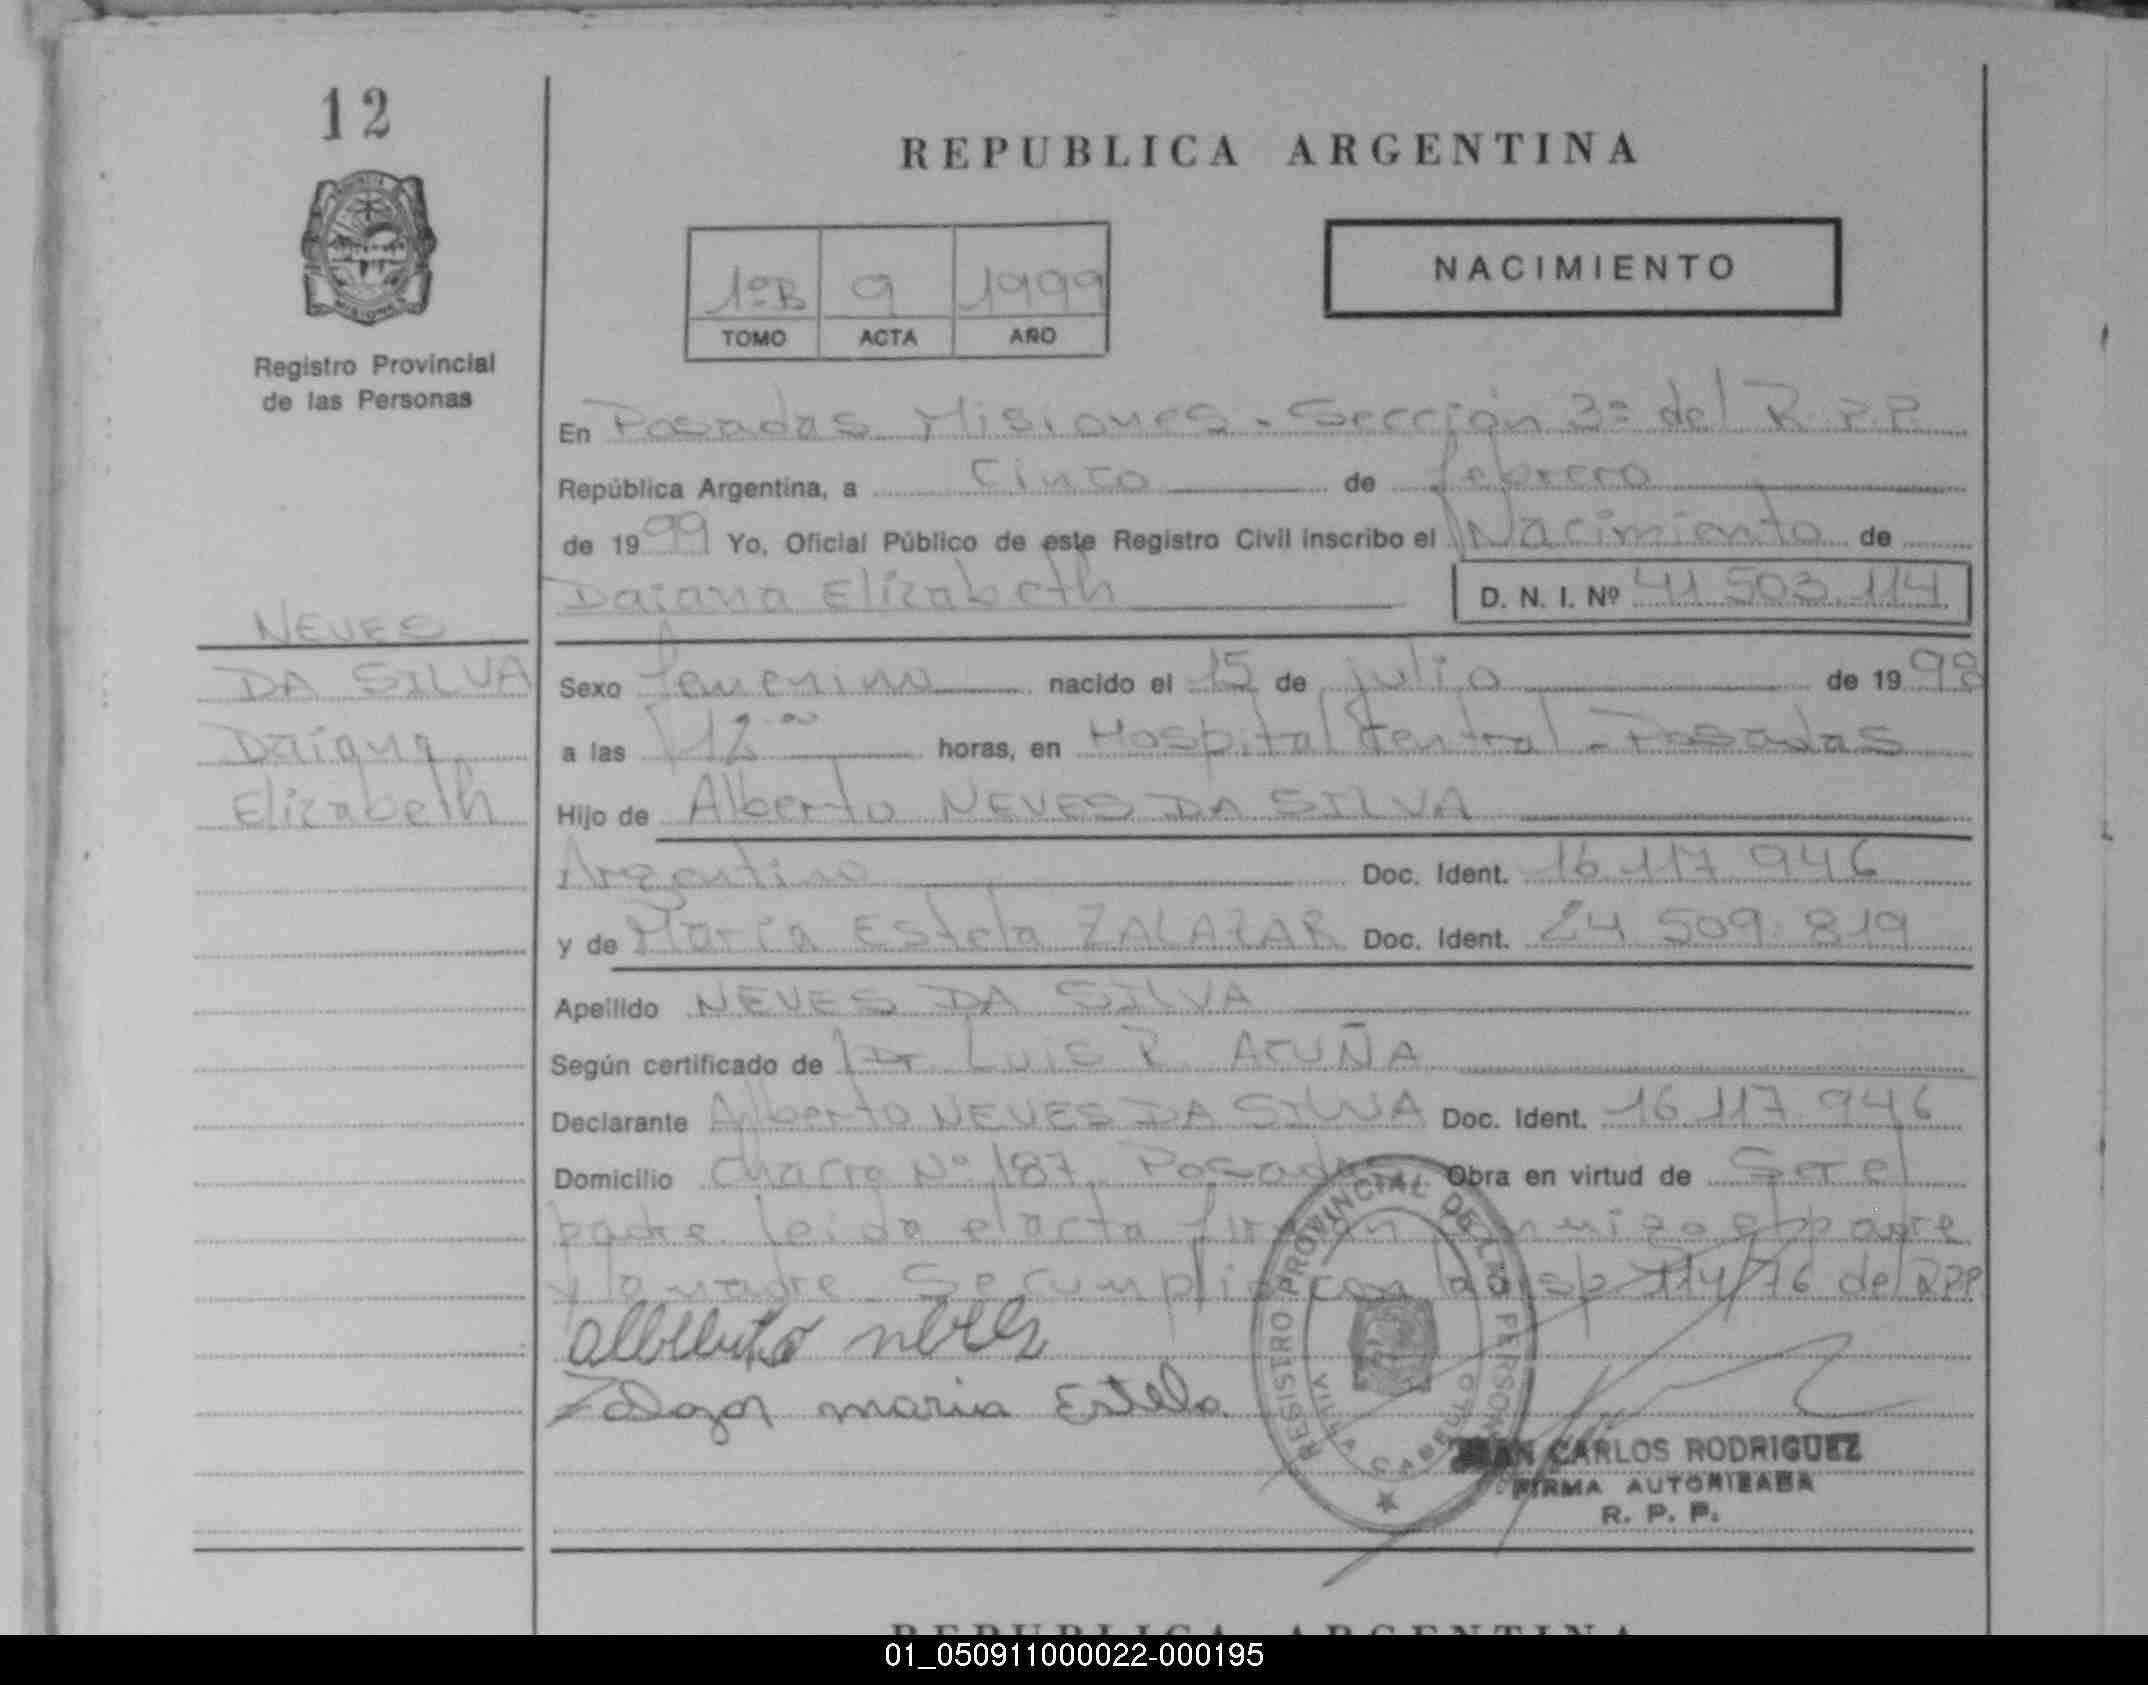 12
REPUBLICA ARGENTINA
NACIMIENTO
1ºB 9 1999
TOMO ACTA AÑO
Registro Provincial
de las Personas
En Posadas Misiones - Sección 3ª del R.P.P.
República Argentina, a Cinco de febrero
de 1999 Yo, Oficial Público de este Registro Civil inscribo el Nacimiento de
Daiana Elizabeth D. N. I. Nº 41 503.114
NEVES
DA SILVA
Daiana
Elizabeth
Sexo femenino nacido el 15 de julio de 1998
a las 12.00 horas, en Hospital Central - Posadas
Hijo de Alberto NEVES DA SILVA
Argentino Doc. Ident. 16.117.946
y de María Estela ZALAZAR Doc. Ident. 24 509.819
Apellido NEVES DA SILVA
Según certificado de Dr Luis R. ACUÑA
Declarante Alberto NEVES DA SILVA Doc. Ident. 16.117.946
Domicilio Chacra Nº 187. Posadas Obra en virtud de Ser el
padre. leida el acta firman conmigo el padre
y la madre. Se cumplió con la Disp 114/76 del RPP
alberto neves
Zalazar maria Estela
REGISTRO PROVINCIAL DE LAS PERSONAS
VILLA CABELLO
JUAN CARLOS RODRIGUEZ
FIRMA AUTORIZADA
R. P. P.
REPUBLICA ARGENTINA
01_050911000022-000195